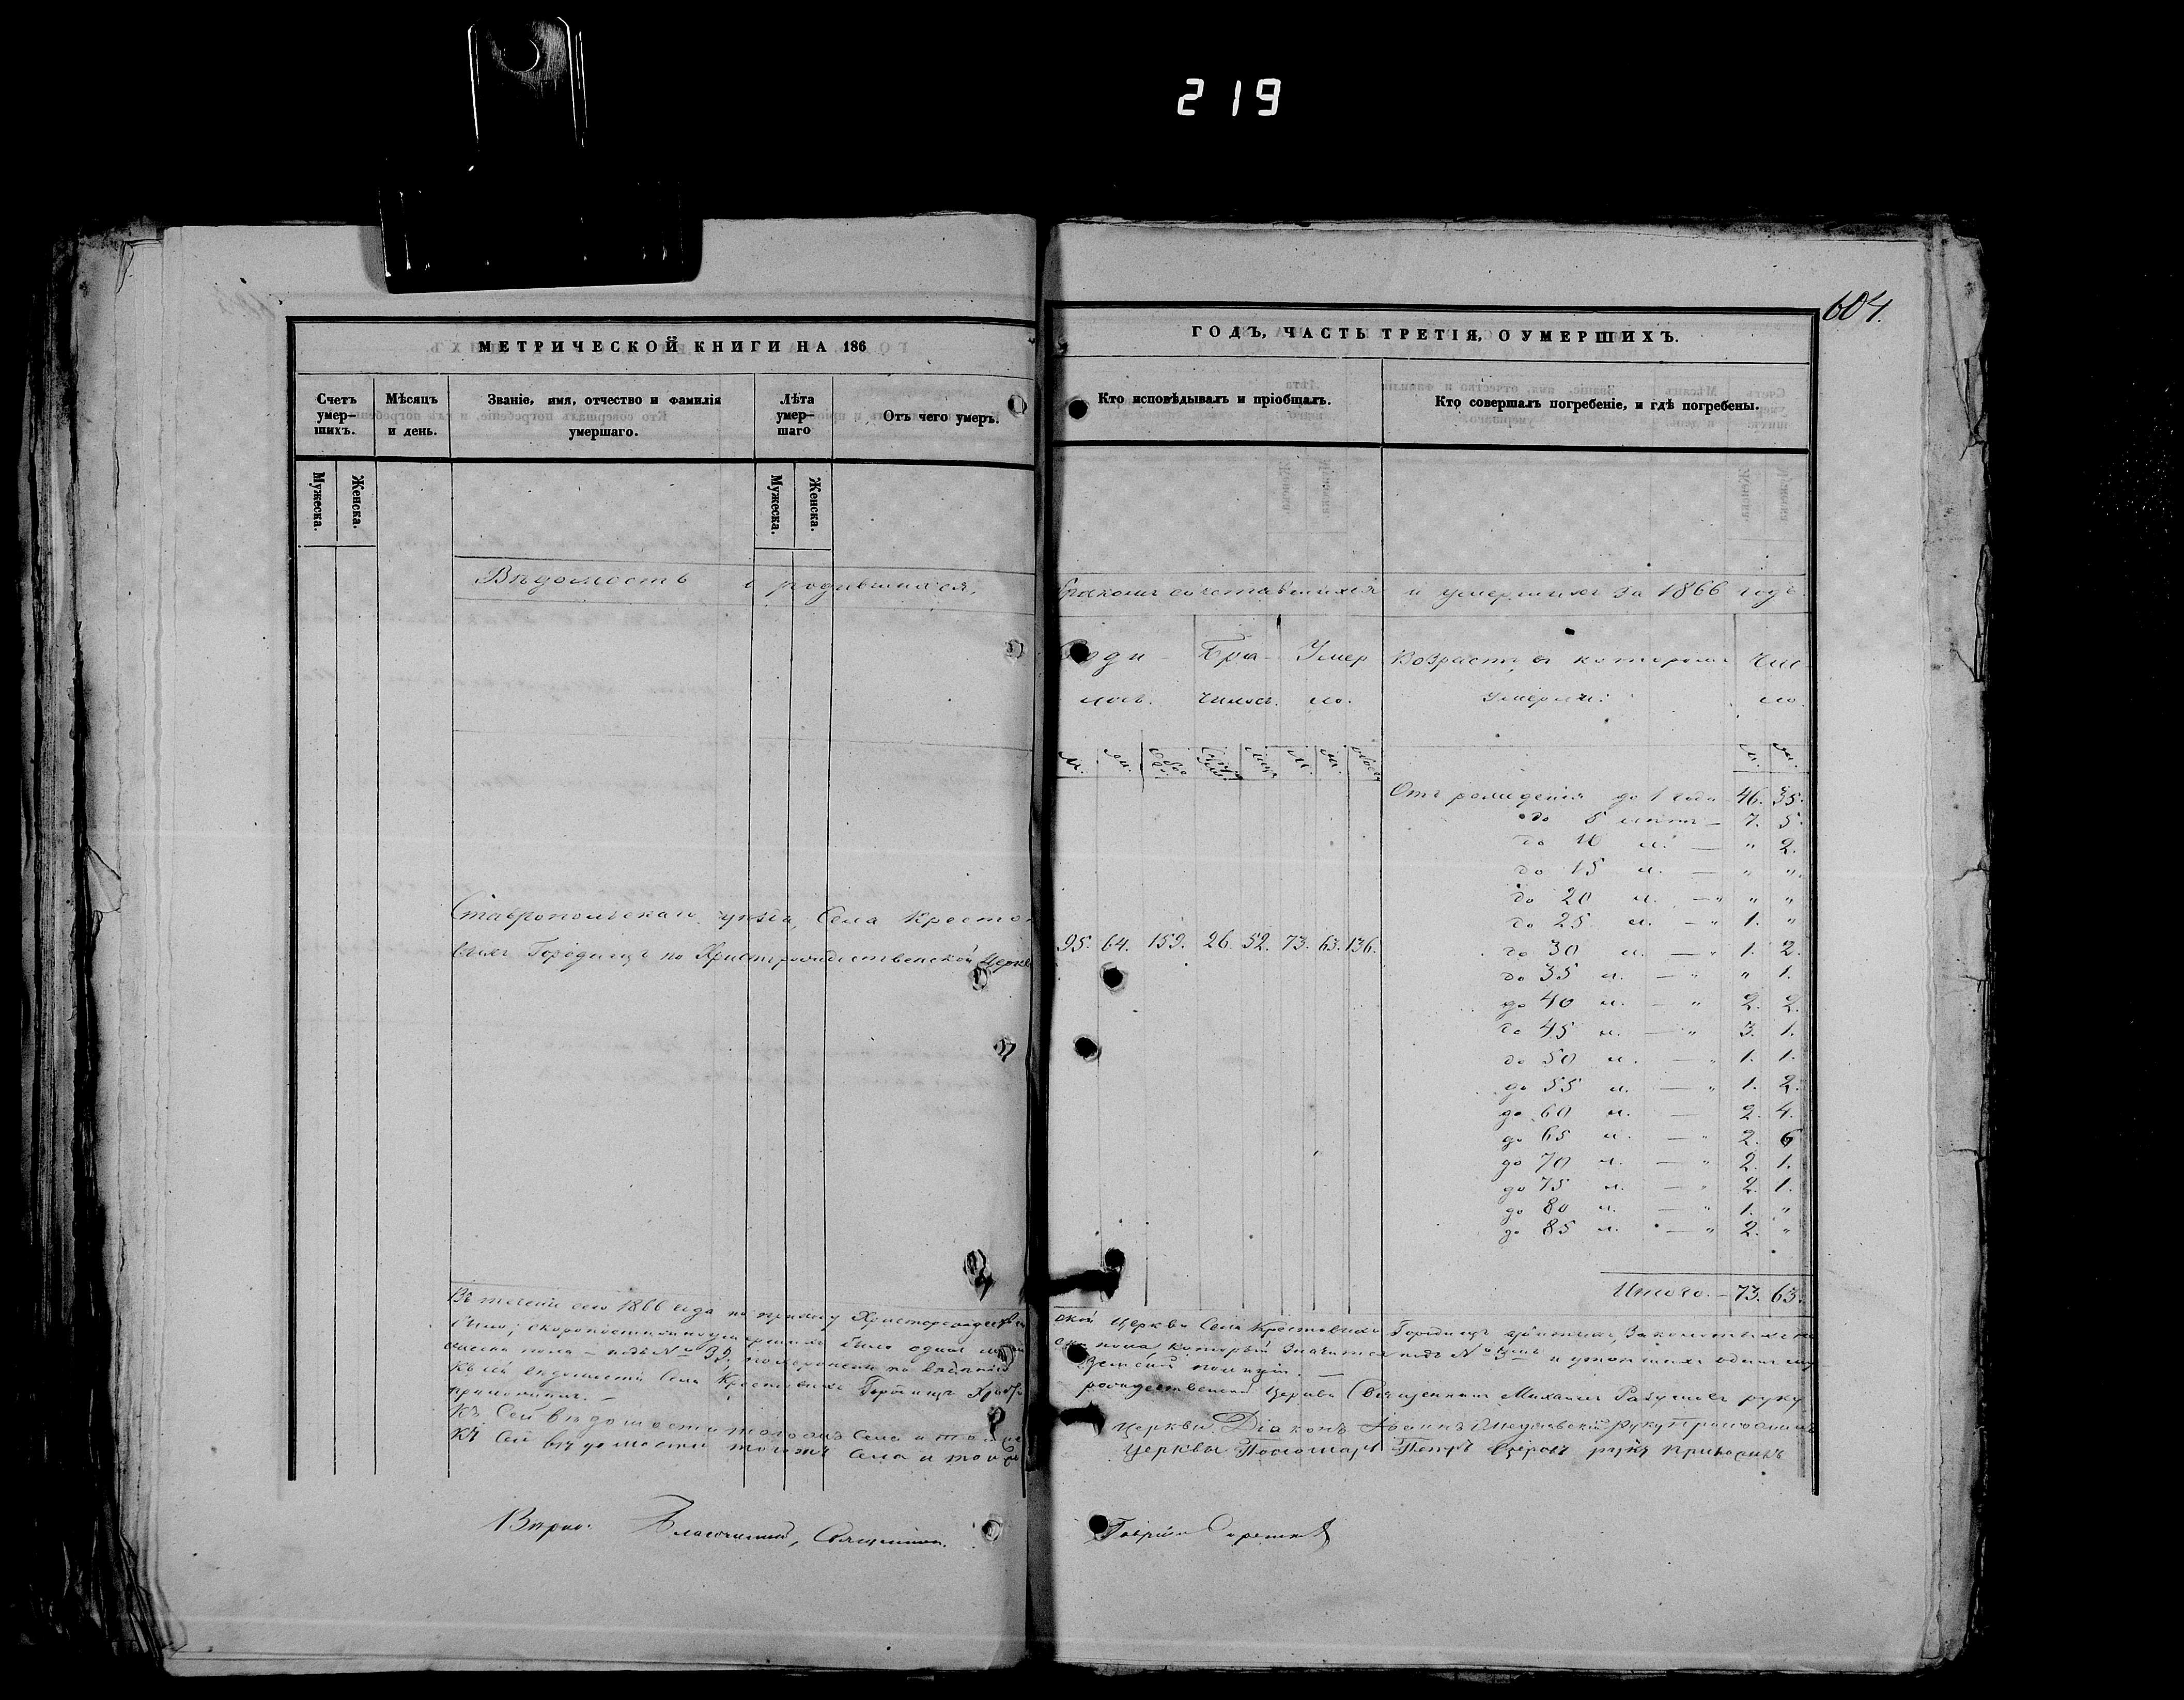 219
604.
МЕТРИЧЕСКОЙ КНИГИ НА 186
Счетъ умер-шихъ.
Мужеска.
Женска.
Мѣсяцъ и день.
Званіе, имя, отчество и фамилія умершаго.
Лѣта умер-шаго
Мужеска.
Женска.
Отъ чего умеръ.
ГОДЪ, ЧАСТЬ ТРЕТІЯ, О УМЕРШИХЪ.
Кто исповѣдывалъ и пріобщалъ.
Кто совершалъ погребеніе, и гдѣ погребены.
Вѣдомость о родившихся, бракомъ сочетавшихся и умершихъ за 1866 годъ.
Роди-лось.
Бра-чилось.
Умер-ло.
Возрастъ въ которомъ умерли:
Чис-ло
Ставропольскаго уѣзда, Села Кресто
выхъ Городищъ по Христорождественской церкви
95. 64. 159. 26. 52. 73. 63. 136.
Отъ рожденія до 1 года 46. 35.
до 5 лѣтъ — 7. 5.
до 10 л. — " 2.
до 15 л. — " ".
до 20 л. — " " "
до 25 л. — " 1. "
до 30 л. — " 1. 2.
до 35 л. — " " 1.
до 40 л. — " 2. 2.
до 45 л. — " 3. 1.
до 50 л. — " 1. 1.
до 55 л. — " 1. 2.
до 60 л. — 2. 4.
до 65 л. — " 2. 6
до 70 л. — " 2. 1.
до 75 л. — " 2. 1.
до 80 л. — " 1. "
до 85 л. — " 2. "
Итого. — 73. 63.
Въ теченіи сего 1866 года по приходу Христорождествен
ской Церкви Села Крестовыхъ Городищъ
было; скоропостижно умершихъ было одинъ
пола который значится подъ №
пола — подъ № 39,
Земской полиціи. —
Къ сей вѣдомости Села Крестовыхъ Городищъ Христо
рождественской Церкви Священникъ Михаилъ руку
приложилъ. —
Къ Сей вѣдомости тогожъ Села и той же
Церкви Діаконъ Іоаннъ руку Приложилъ
Къ Сей вѣдомости тогожъ Села и той же
Церкви Пономарь Петръ руку приложилъ
Вѣрно: Благочинный, Священникъ
Гавріилъ